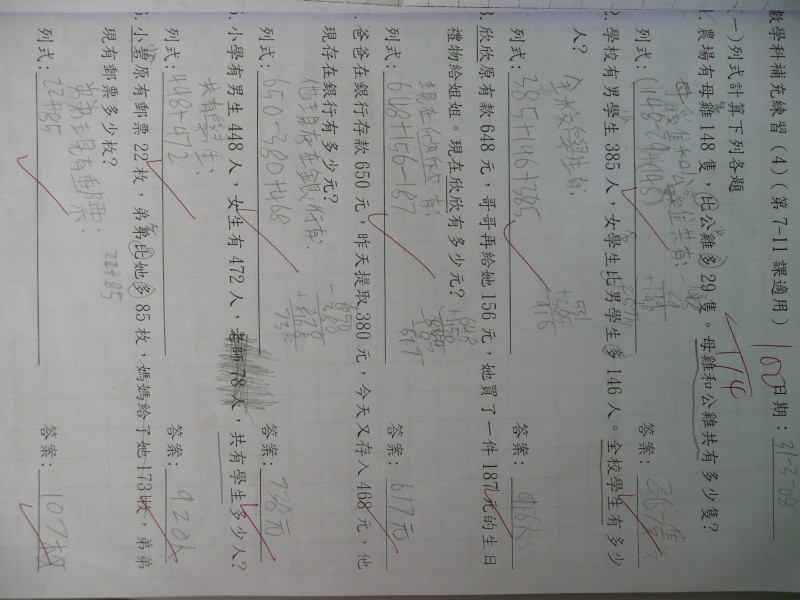 數學科補充練習(4)(第7-11課適用) 日期:31-3-08
100
一)列式計算下列各題
農場有母雞148隻,比公雞多29隻。母雞和公雞共有多少隻?
母雞和公雞共有:
列式:(148-29)+148 答案:267隻
2. 學校有男學生385人,女學生比男學生多146人。全校學生有多少
人?
全校學生有:
列式:385+146+385 答案:916人
531
+385
916
3. 欣欣原有款648元,哥哥再給她156元,她買了一件187元的生日
禮物給姐姐。現在欣欣有多少元?
現在欣欣有:
列式:648+156-187 答案:617元
爸爸在銀行存款650元,昨天提取380元,今天又存入468元,他
現存在銀行有多少元?
他現存在銀行有:
列式:650-380+468 答案:738元
小學有男生448人,女生有472人,老師78人,共有學生多少人?
共有學生:
列式:448+472 答案:920人
小碧原有郵票22枚,弟弟比她多85枚,媽媽給了她173枚,弟弟
現有郵票多少枚?
弟弟現有郵票:
22+85
列式:22+85 答案:107枚